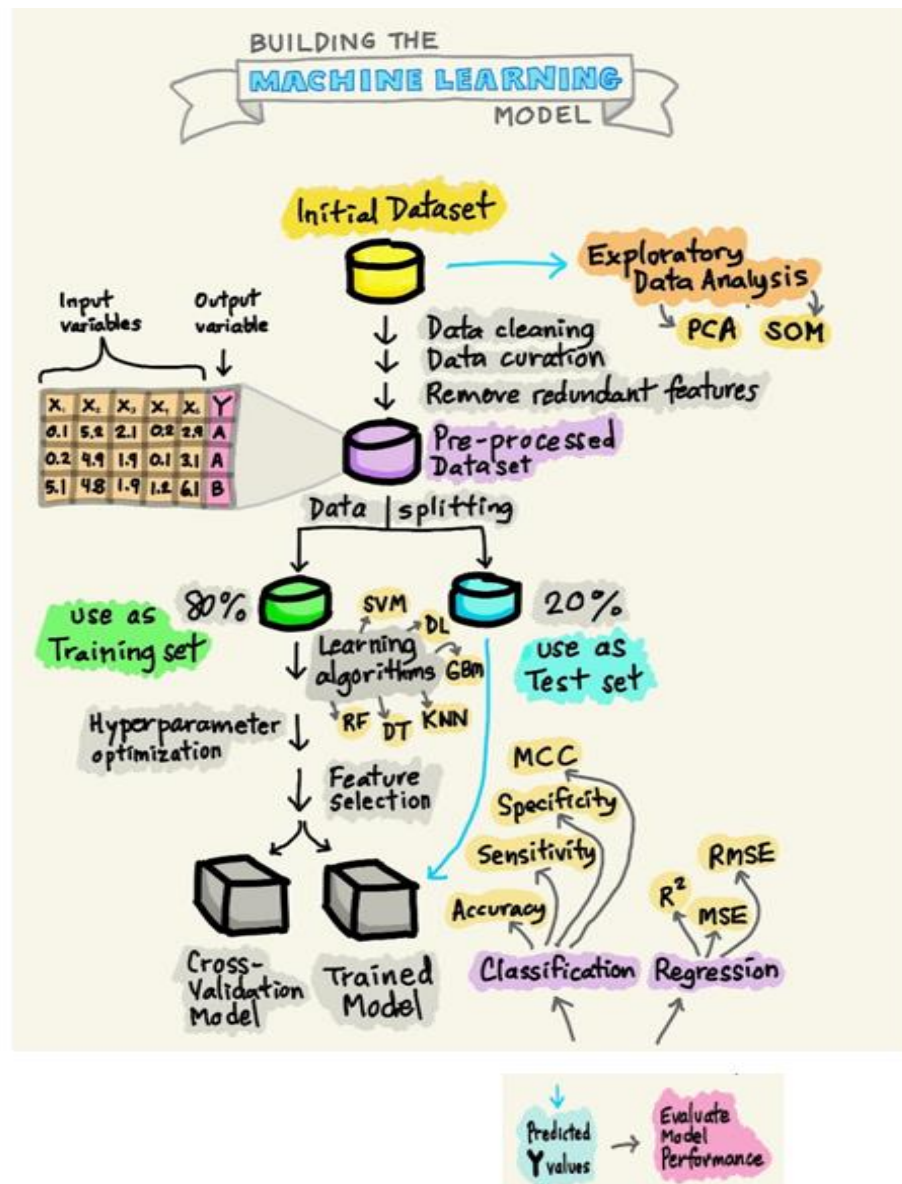 BUILDING THE
MACHINE LEARNING
MODEL
Initial Dataset
Exploratory
Data Analysis
PCA SOM
Input
variables
Output
variable
Data cleaning
Data curation
Remove redundant features
X₁ X₂ X₃ X₄ X₅ Y
0.1 5.2 2.1 0.2 2.9 A
0.2 4.9 1.9 0.1 3.1 A
5.1 4.8 1.9 1.2 6.1 B
Pre-processed
Dataset
Data splitting
80%
use as
Training set
20%
use as
Test set
Learning
algorithms
SVM
DL
GBM
KNN
DT
RF
Hyperparameter
optimization
Feature
selection
Cross-
Validation
Model
Trained
Model
MCC
Specificity
Sensitivity
Accuracy
Classification
RMSE
R²
MSE
Regression
Predicted
Y values
Evaluate
Model
Performance